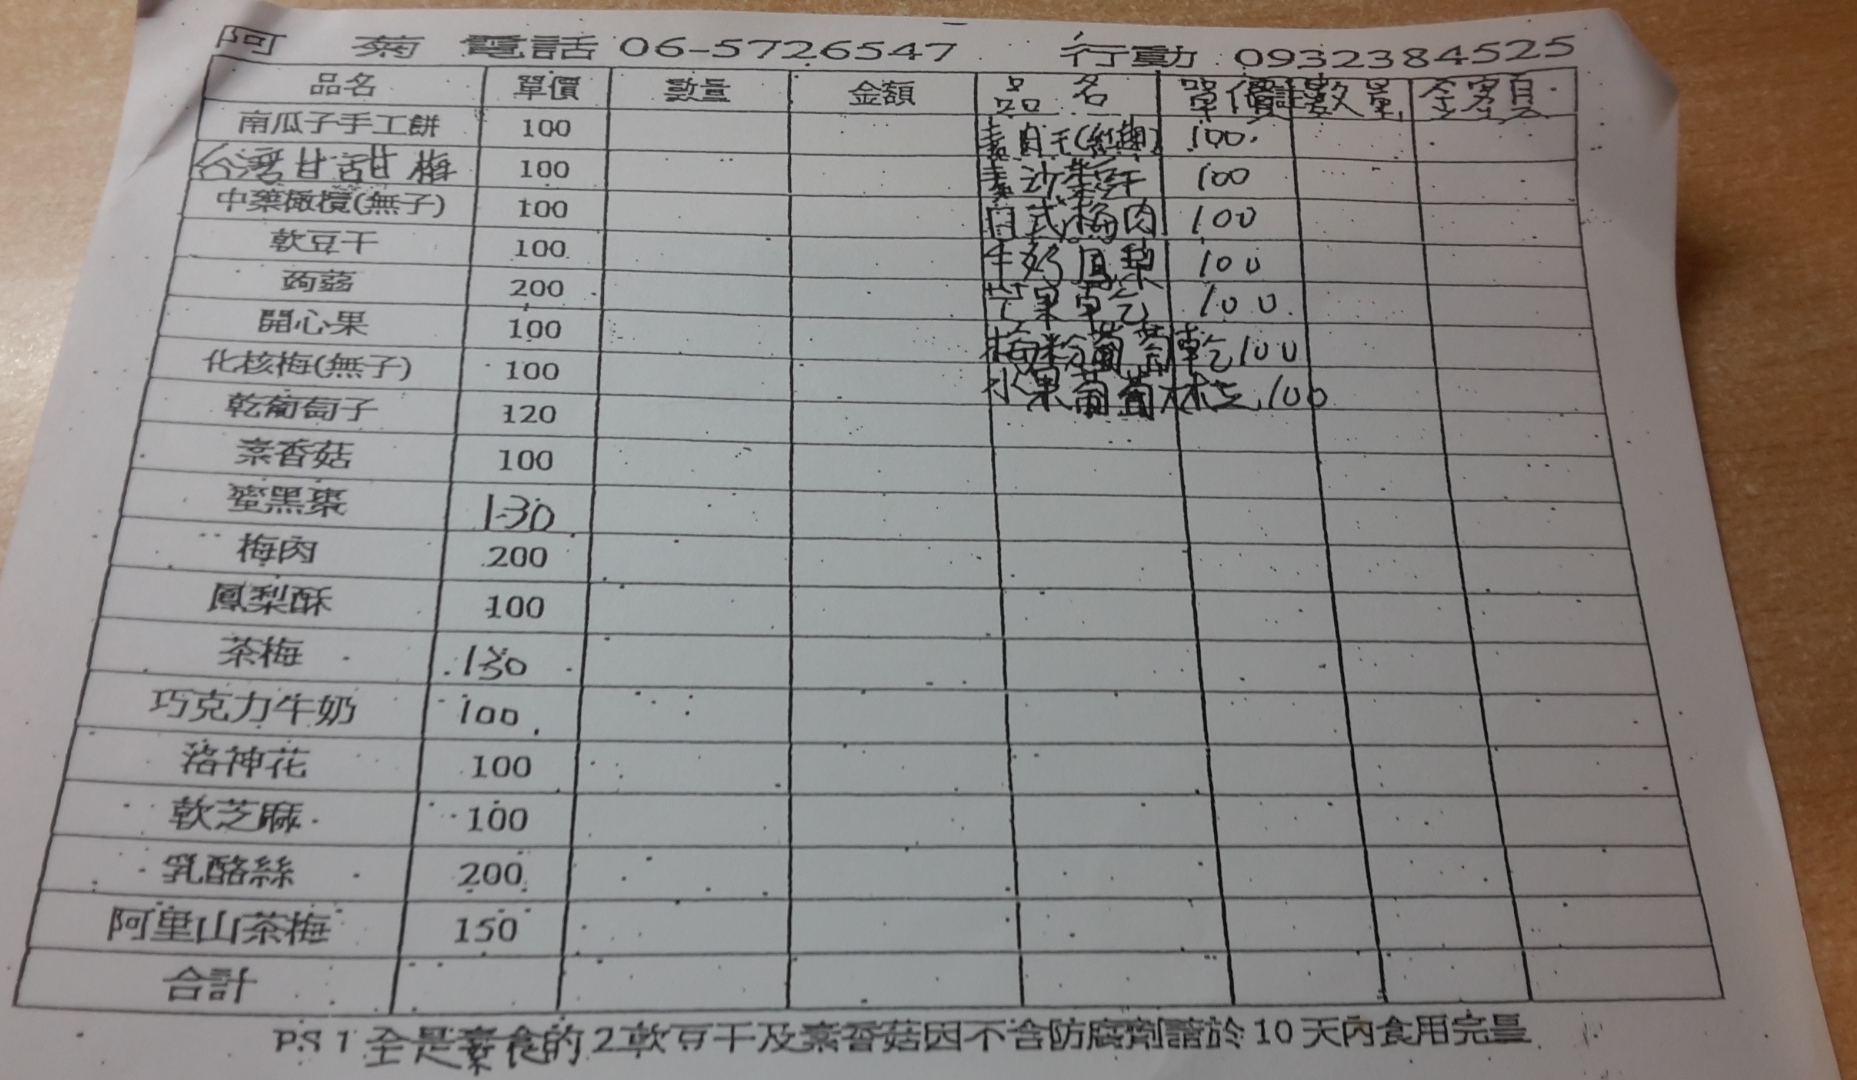 阿 菊 電話 06-5726547 行動 0932384525
品名 單價 數量 金額 品名 單價 數量 金額
南瓜子手工餅 100 素肉干(紅麴) 100
台灣甘甜梅 100 素沙茶干 100
中藥橄欖(無子) 100 日式梅肉 100
軟豆干 100 牛奶鳳梨 100
蒟蒻 200 芒果乾 100
開心果 100 梅粉葡萄乾 100
化核梅(無子) 100 水果葡萄 100
乾葡萄子 120
素香菇 100
蜜黑棗 130
梅肉 200
鳳梨酥 100
茶梅 130
巧克力牛奶 100
洛神花 100
軟芝麻 100
乳酪絲 200
阿里山茶梅 150
合計
PS 1 全是素食的 2 軟豆干及素香菇因不含防腐劑請於 10 天內食用完畢